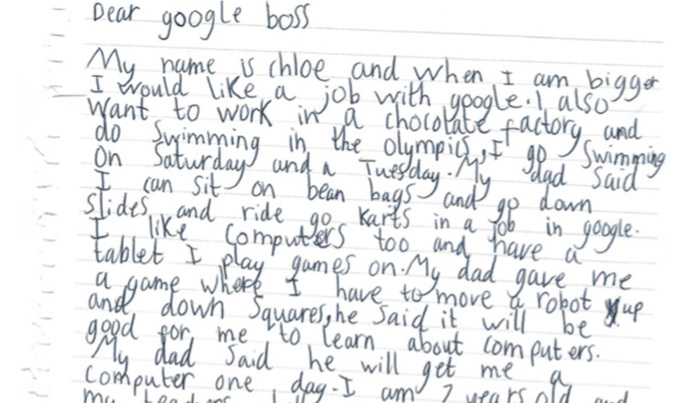 Dear google boss
My name is chloe and when I am bigger
I would like a job with google. I also
want to work in a chocolate factory and
do swimming in the olympics, I go swimming
on Saturday and a Tuesday. My dad said
I can sit on bean bags and go down
slides and ride go karts in a job in google.
I like computers too and have a
tablet I play games on. My dad gave me
a game where I have to move a robot up
and down squares, he said it will be
good for me to learn about computers.
My dad said he will get me a
computer one day. I am 7 years old and
my